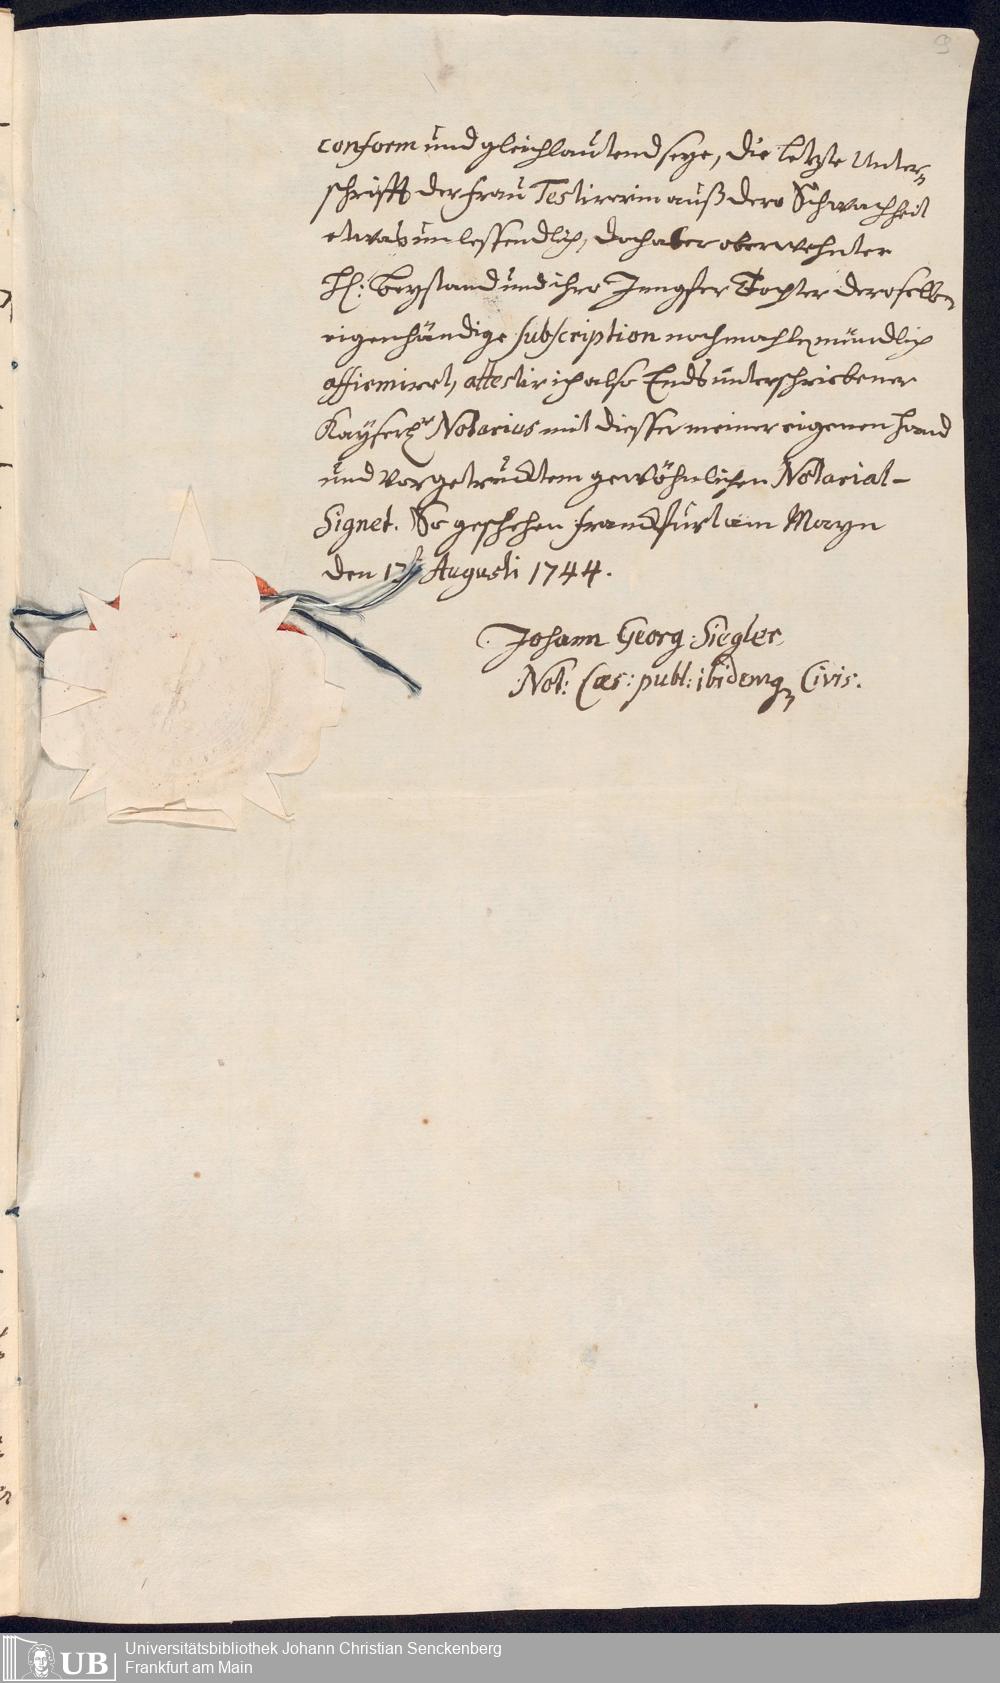 9
conform und gleichlautend seye, die letzte Unter=
schrifft der Frau Testirerin auß dero Schwachheit
etwas unlessendlich, doch aber oberwehnter
H: Beystand und ihro Jungfer Tochter deroselben
eigenhändige subscription nochmahlen mündlich
affirmiret, attestir ich also Ends unterschriebener
Kayserl. Notarius mit diesser meiner eigenen Hand
und vorgetrucktem gewöhnlichen Notariat-
Signet. So geschehen Franckfurt am Mayn
den 17. Augusti 1744.
Johann Georg Siegler
Not: Cæs: publ: ibidemq Civis.
UB
Universitätsbibliothek Johann Christian Senckenberg
Frankfurt am Main